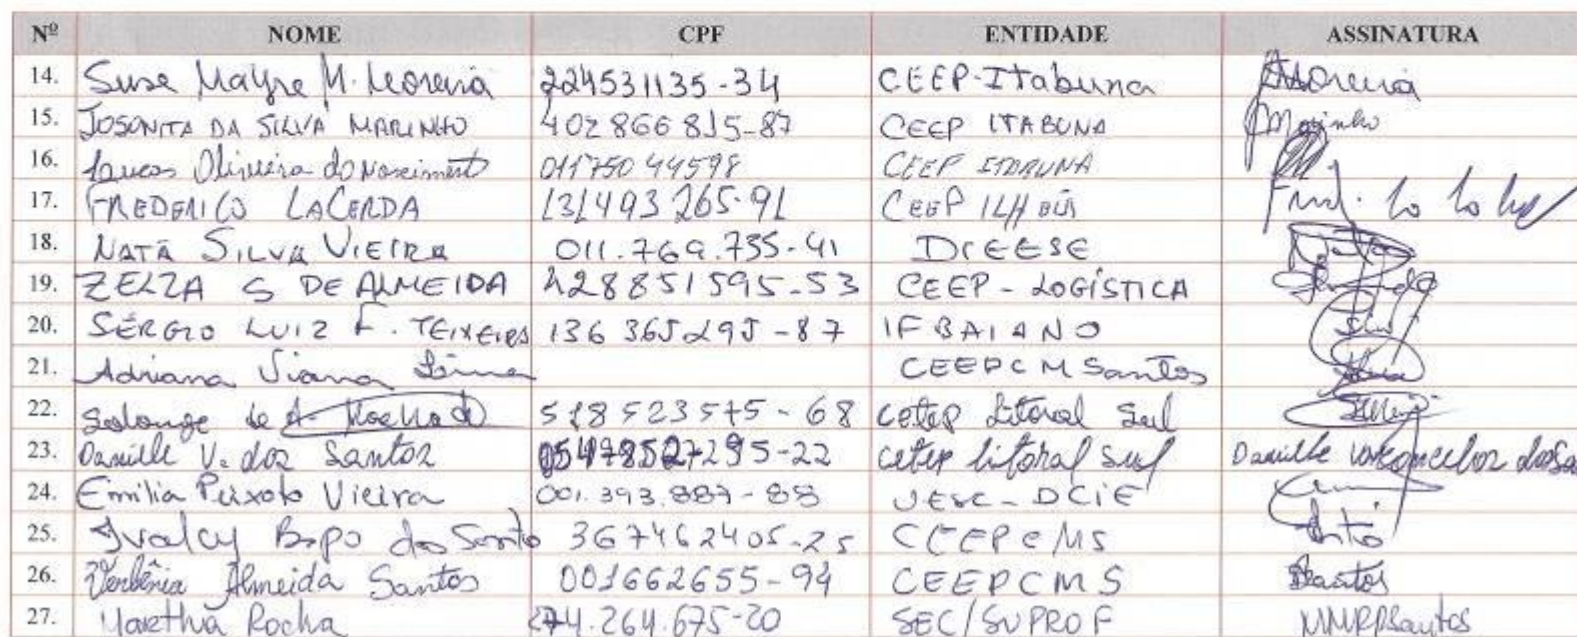 Nº NOME CPF ENTIDADE ASSINATURA
14. Suse Mayre M. Moreira 224531135-34 CEEP-Itabuna Moreira
15. JOSONITA DA SILVA MARINHO 402866815-87 CEEP ITABUNA Marinho
16. Lucas Oliveira do Nascimento 01175044598 CEEP ITABUNA
17. FREDERICO LACERDA 131493265-91 CEEP ILHÉUS
18. NATÃ SILVA VIEIRA 011.769.735-41 DIEESE
19. ZELZA S DE ALMEIDA 428851595-53 CEEP - LOGÍSTICA
20. SÉRGIO LUIZ F. TEIXEIRA 136 365295-87 IF BAIANO
21. Adriana Viana CEEPCM Santos
22. Solange de A. Machado 518523575-68 cetep Litoral Sul
23. Danille V. dos Santos 295-22 cetep litoral sul Danille
24. Emilia Peixoto Vieira 001.393.887-88 UESC-DCIE
25. Ivalcy Bispo dos Santo 367462405-25 CEEPCMS
26. Verbênia Almeida Santos 001662655-94 CEEPCMS Santos
27. Martha Rocha 274.264.675-20 SEC/SUPROF MMRPSantos